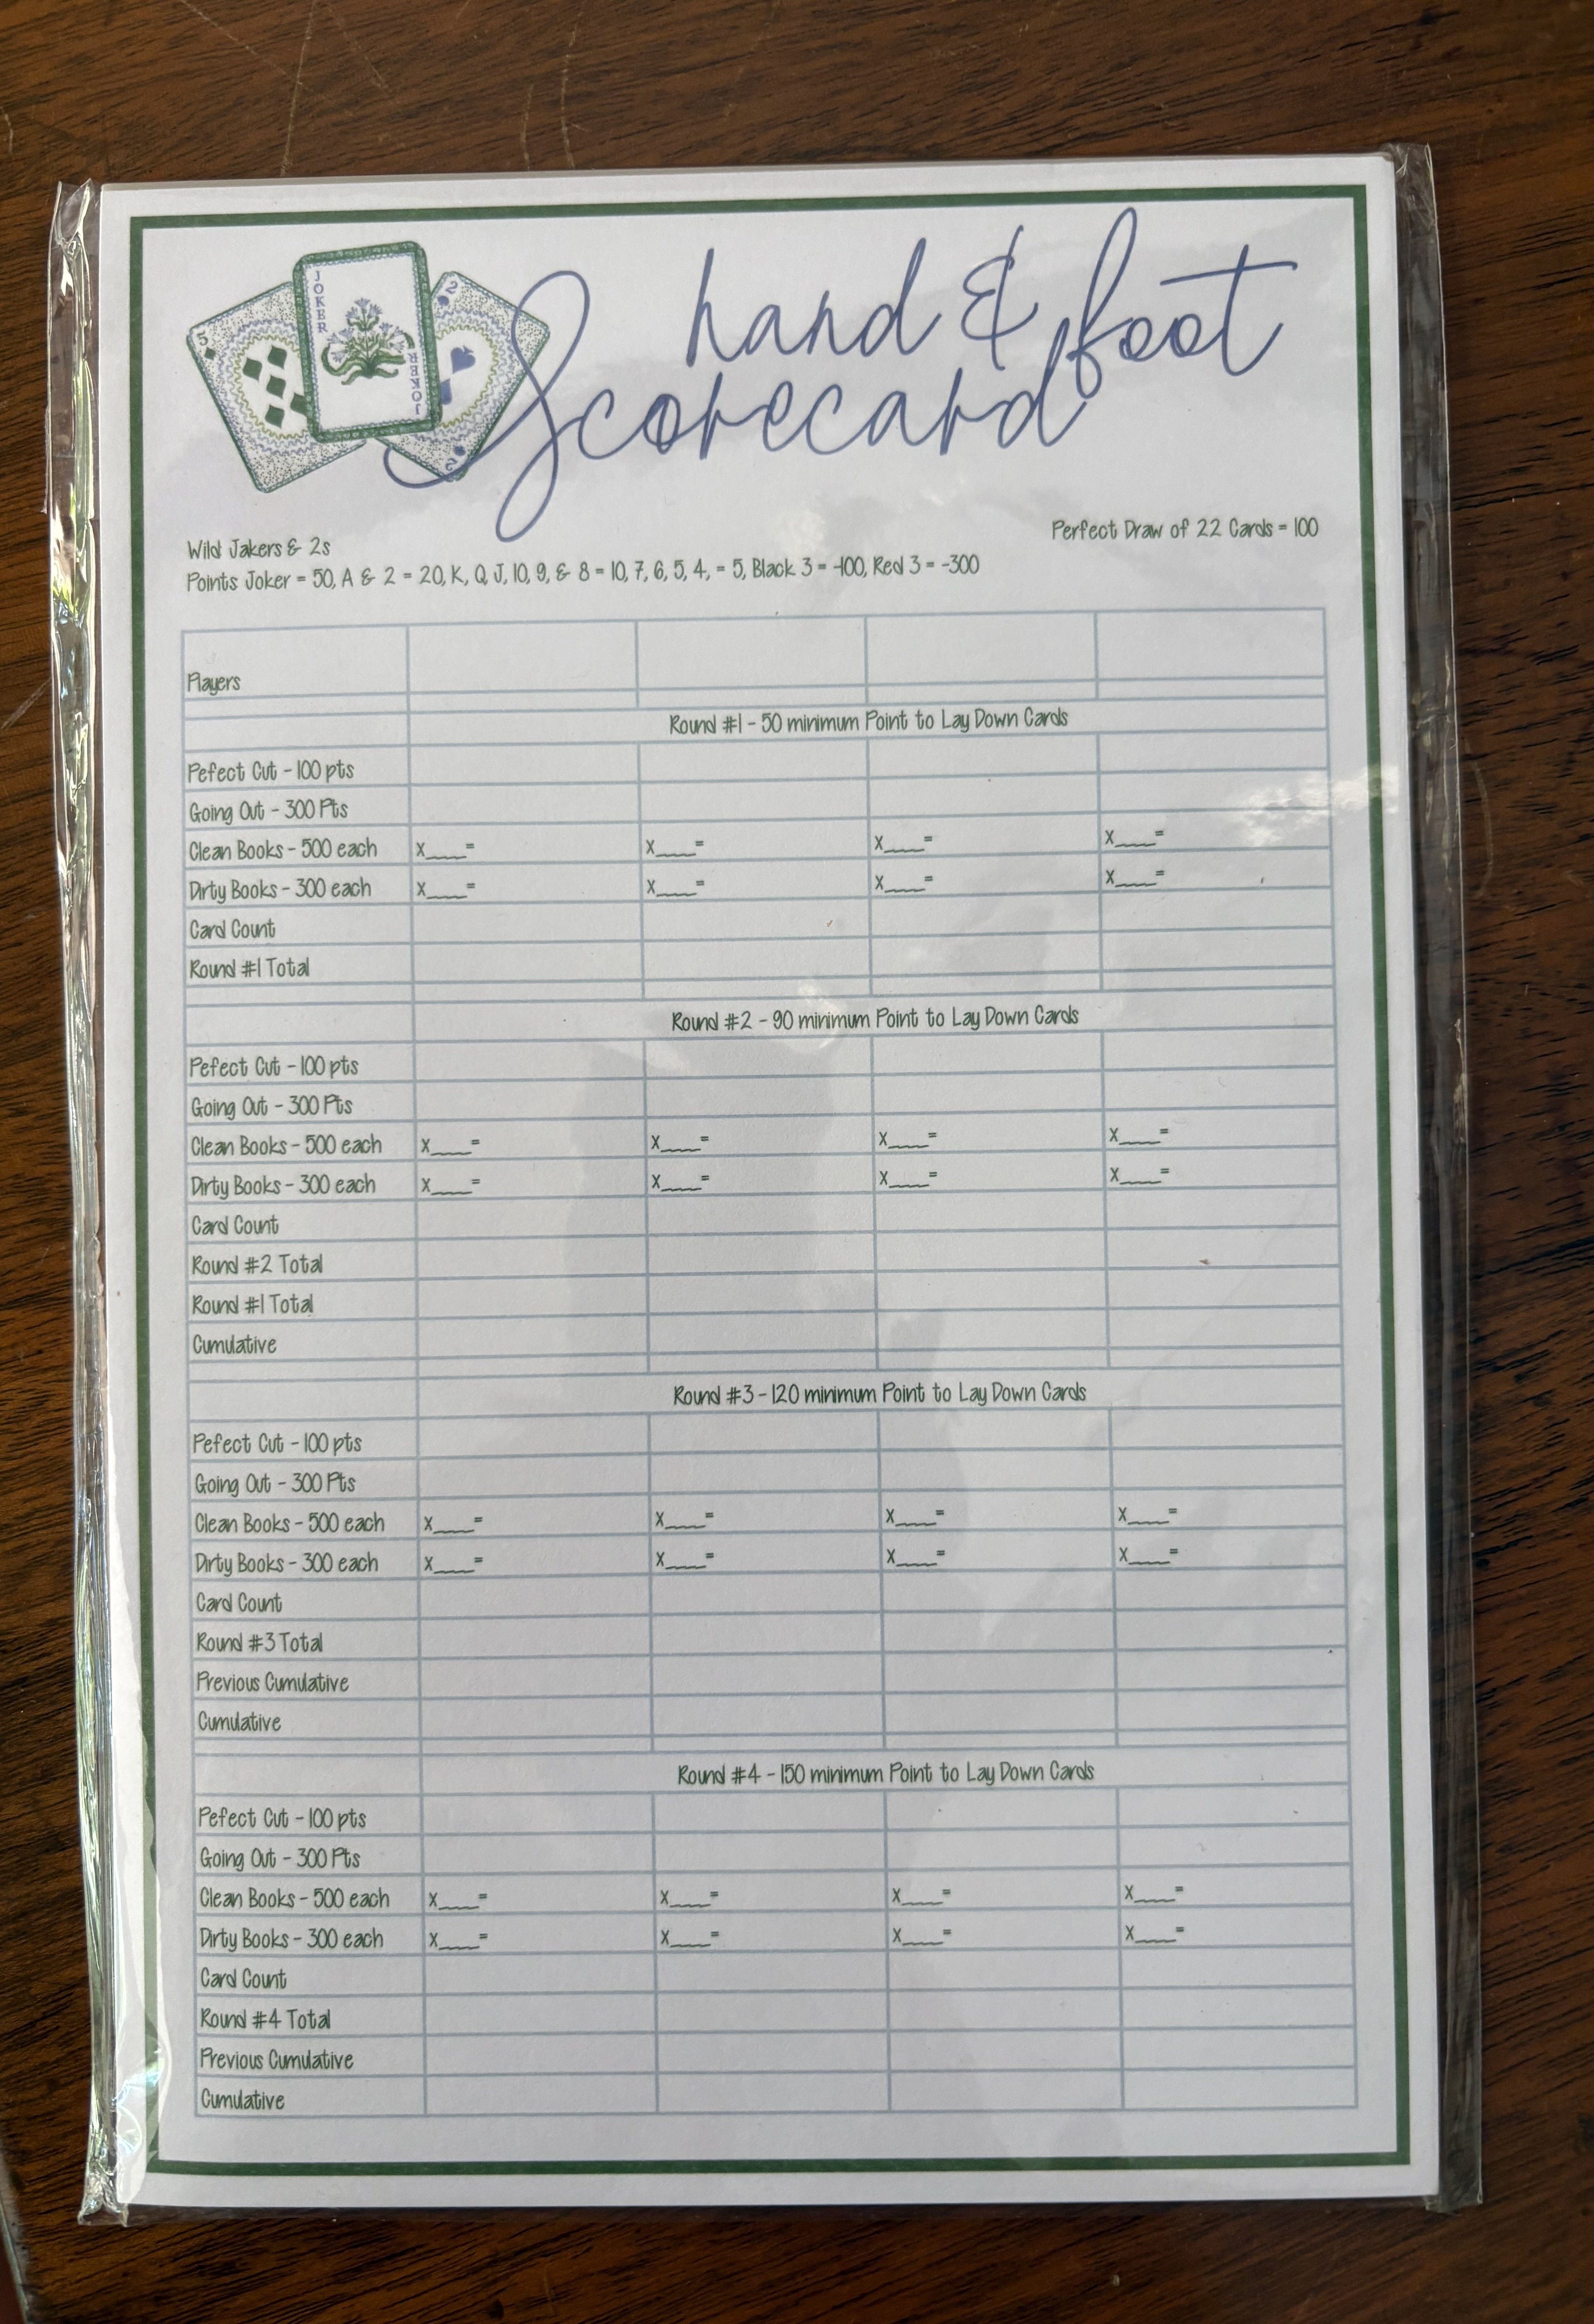 hand & foot
Scorecard
5
JOKER
JOKER
2
2
Perfect Draw of 22 Cards = 100
Wild Jakers & 2s
Points Joker = 50, A & 2 = 20, K, Q, J, 10, 9, & 8 = 10, 7, 6, 5, 4, = 5, Black 3 = -100, Red 3 = -300
Players
Round #1 - 50 minimum Point to Lay Down Cards
Pefect Cut - 100 pts
Going Out - 300 Pts
Clean Books - 500 each x____= x____= x____= x____=
Dirty Books - 300 each x____= x____= x____= x____=
Card Count
Round #1 Total
Round #2 - 90 minimum Point to Lay Down Cards
Pefect Cut - 100 pts
Going Out - 300 Pts
Clean Books - 500 each x____= x____= x____= x____=
Dirty Books - 300 each x____= x____= x____= x____=
Card Count
Round #2 Total
Round #1 Total
Cumulative
Round #3 - 120 minimum Point to Lay Down Cards
Pefect Cut - 100 pts
Going Out - 300 Pts
Clean Books - 500 each x____= x____= x____= x____=
Dirty Books - 300 each x____= x____= x____= x____=
Card Count
Round #3 Total
Previous Cumulative
Cumulative
Round #4 - 150 minimum Point to Lay Down Cards
Pefect Cut - 100 pts
Going Out - 300 Pts
Clean Books - 500 each x____= x____= x____= x____=
Dirty Books - 300 each x____= x____= x____= x____=
Card Count
Round #4 Total
Previous Cumulative
Cumulative